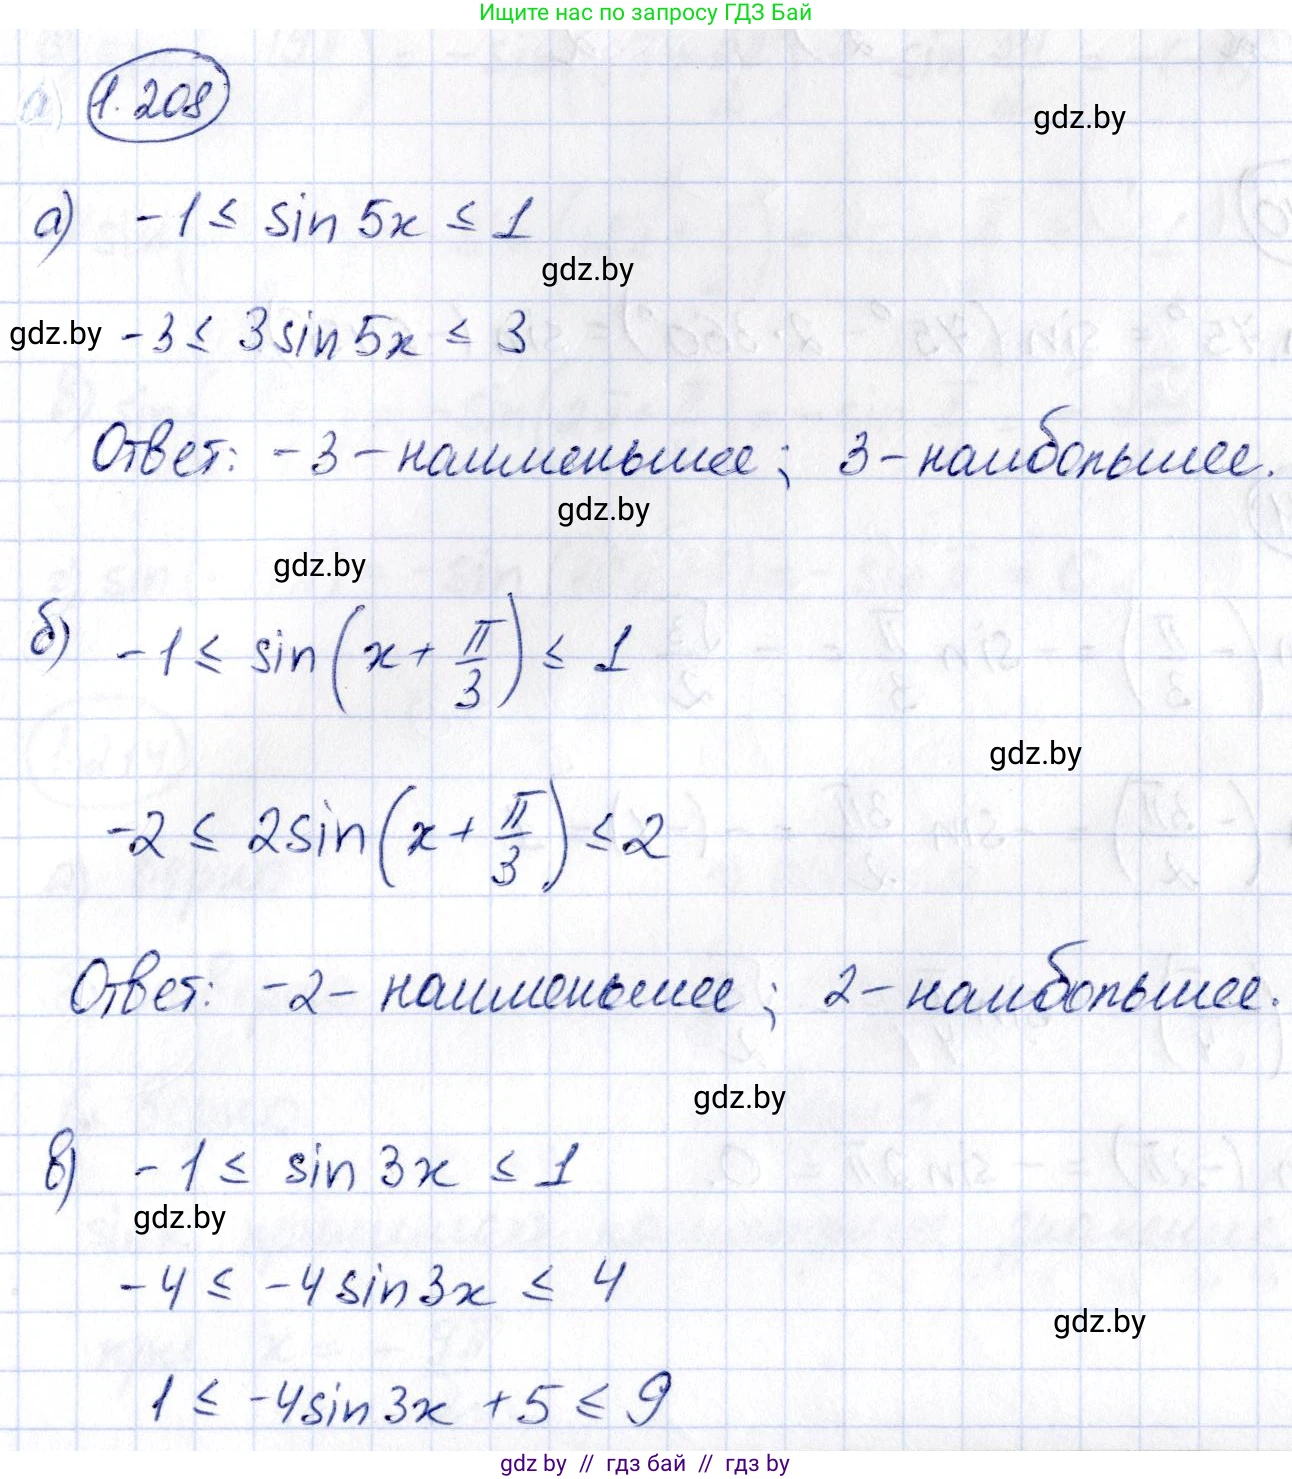 Ищите нас по запросу ГДЗ Бай
1.208
gdz.by
а) -1 ≤ sin 5x ≤ 1
gdz.by
gdz.by -3 ≤ 3 sin 5x ≤ 3
Ответ: -3 - наименьшее; 3 - наибольшее.
gdz.by
gdz.by
б) -1 ≤ sin(x + π/3) ≤ 1
gdz.by
-2 ≤ 2 sin(x + π/3) ≤ 2
Ответ: -2 - наименьшее; 2 - наибольшее.
gdz.by
в) -1 ≤ sin 3x ≤ 1
gdz.by
-4 ≤ -4 sin 3x ≤ 4
gdz.by
1 ≤ -4 sin 3x + 5 ≤ 9
gdz by // гдз бай // гдз by